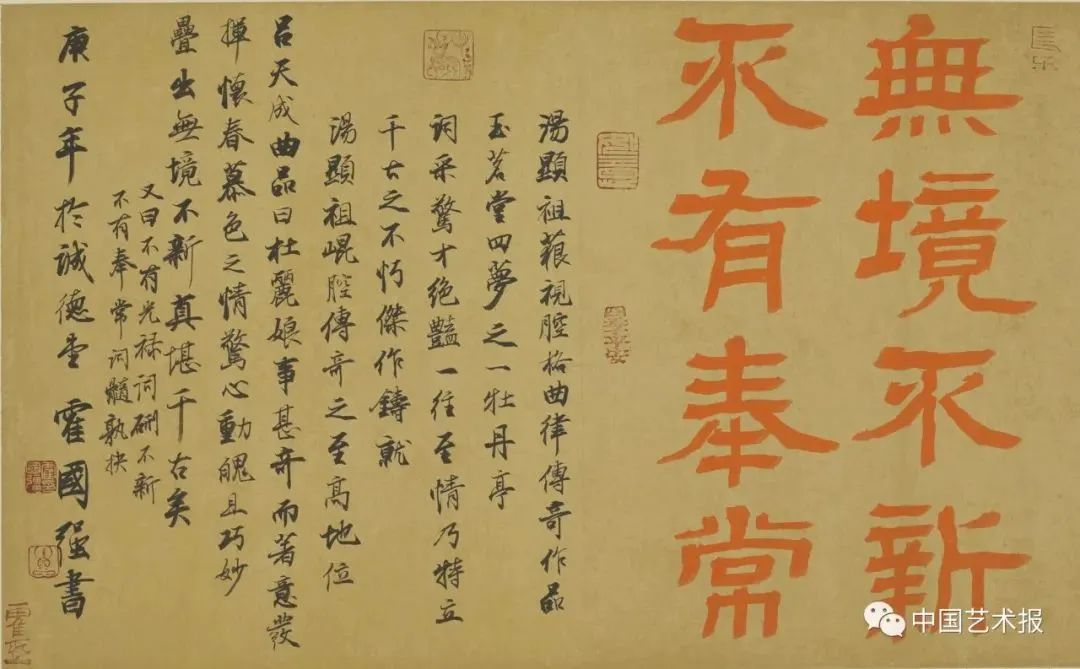 無境不新
不有奉常
湯顯祖藐視腔格曲律傳奇作品
玉茗堂四夢之一牡丹亭
詞采驚才絕豔一往至情乃特立
千古之不朽傑作鑄就
湯顯祖崐腔傳奇之至高地位
吕天成曲品曰杜麗娘事甚奇而著意發
揮懷春慕色之情驚心動魄且巧妙
疊出無境不新真堪千古矣
又曰不有光禄詞硎不新
不有奉常詞髓孰抉
庚子年於誠德堂霍國强書
中国艺术报